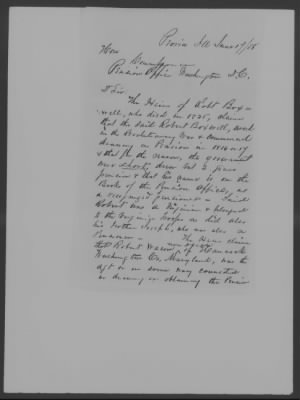 Hon
Commissioner
Pension Office Washington D.C.
D Sir.
The Heirs of Robt Box-
well, who died in 1825, claim
that the said Robert Boxwell, was
in the Revolutionary War & commenced
drawing a Pension in 1816 or 17
& that for the reason, the government
was short, drew but 2 years
pension & that his name is on the
Books of the Pension Office, as
a recognized pensioner - Said
Robert was a Virginian & belonged
to the Virginia troops as did also
his brother Joseph, who was also a
Pensioner - The Heirs claim
that Robert Wason, of Hancock
Washington Co, Maryland, was the
Agt or in some way connected
in drawing or obtaining the Pension